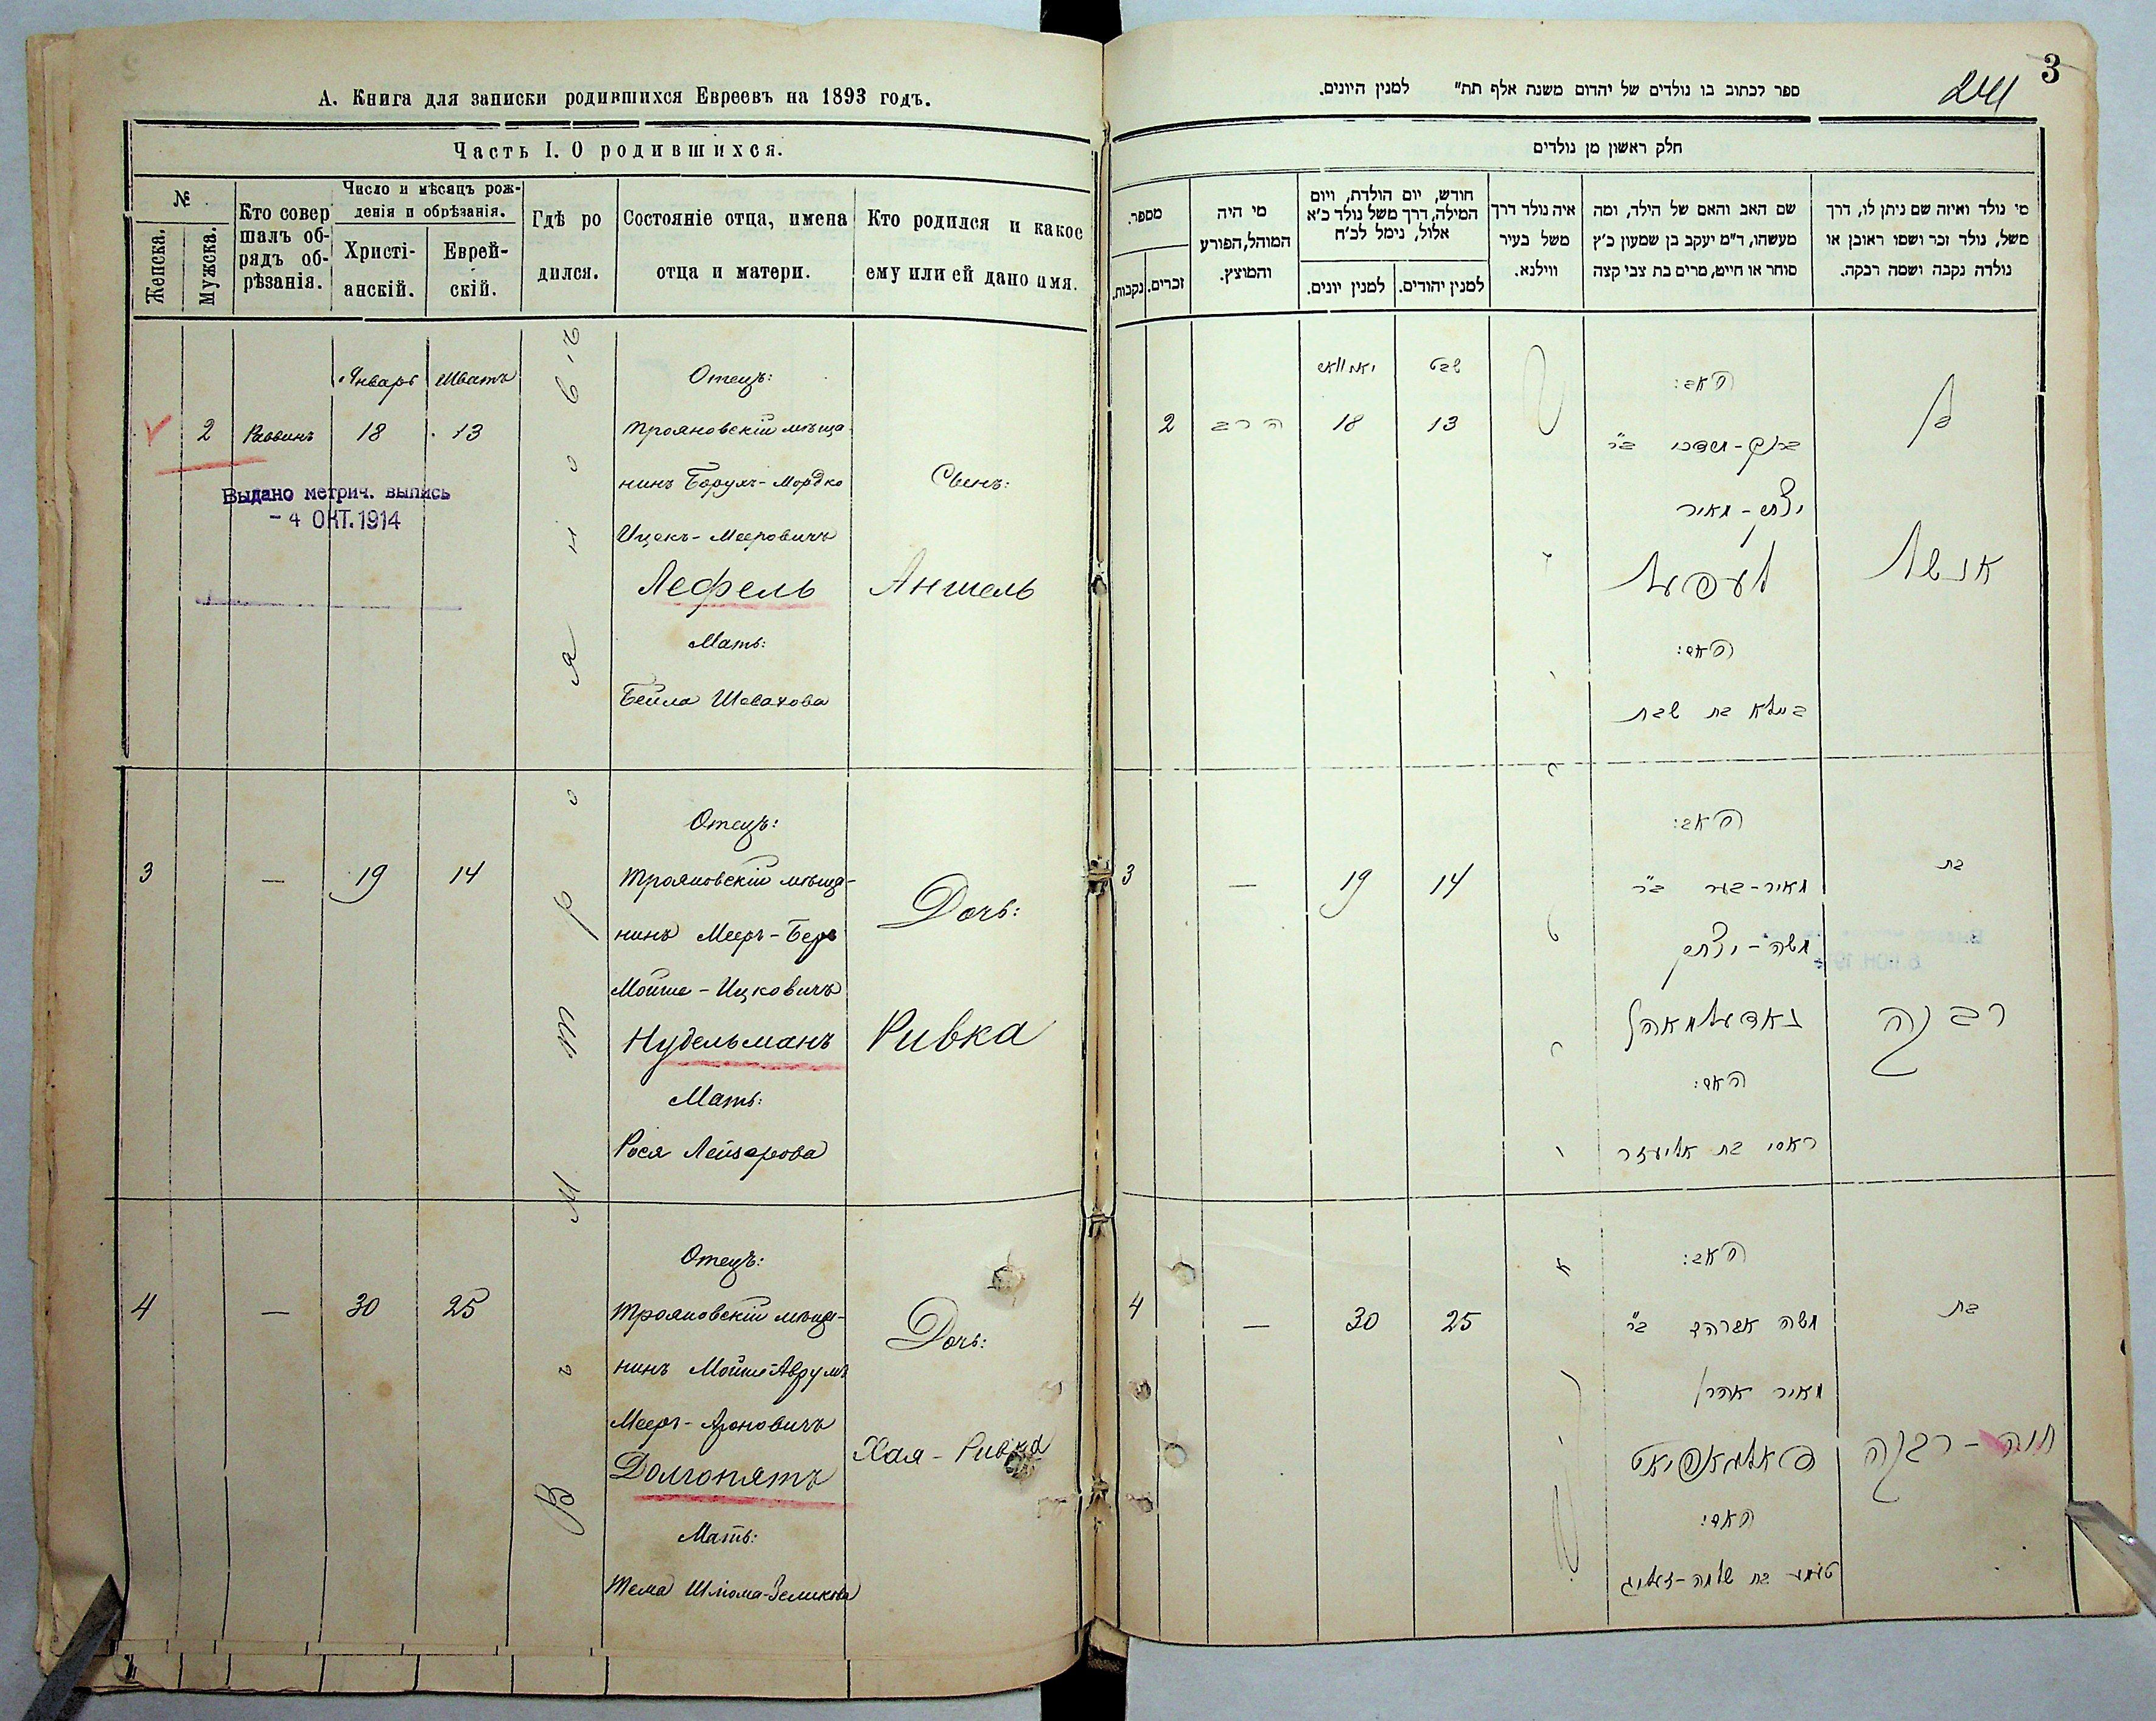 А. Книга для записки родившихся Евреевъ на 1893 годъ.
Часть I. О родившихся.
№
Женска.
Мужска.
Кто совершалъ обрядъ обрѣзанія.
Число и мѣсяцъ рожденія и обрѣзанія.
Христіанскій.
Еврейскій.
Гдѣ родился.
Состояніе отца, имена отца и матери.
Кто родился и какое ему или ей дано имя.
Январь Шватъ
2 Раввинъ 18 13
Выдано метрич. выпись
- 4 ОКТ. 1914
Отецъ:
Трояновскій мѣща-
нинъ Борухъ-Мордко
Ицекъ-Мееровичъ
Лефель
Мать:
Бейла Шевахова
Сынъ:
Аншель
3 — 19 14
Отецъ:
Трояновскій мѣща-
нинъ Мееръ-Беръ
Мойше-Ицковичъ
Нудельманъ
Мать:
Рося Лейзерова
Дочь:
Ривка
4 — 30 25
Отецъ:
Трояновскій мѣща-
нинъ Мойше-Аврумъ
Мееръ-Ароновичъ
Долгопятъ
Мать:
Тема Шлiома-Зеликова
Дочь:
Хая-Ривка
3
ספר לכתוב בו נולדים של יהדום משנת אלף תת" למנין היונים.
חלק ראשון מן נולדים
מי נולד ואיזה שם ניתן לו, דרך
משל, נולד זכר ושמו ראובן או
נולדה נקבה ושמה רבקה.
שם האב והאם של הילד, ומה
מעשהו, ד"מ יעקב בן שמעון כ'ץ
סוחר או חייט, מרים בת צבי קצה
איה נולד דרך
משל בעיר
ווילנא.
חודש, יום הולדת, ויום
המילה, דרך משל נולד כ'א
אלול, נימל לכ'ח
למנין יהודים.
למנין יונים.
מי היה
המוהל, הפורע
והמוצץ.
מספר.
זכרים.
נקבות.
שבט
2 הרב 18 13
האב:
ברוך-מרדכי ב"ר
יצחק-מאיר
לעפעל
האם:
ביילא בת שבח
בן
אנשל
3 — 19 14
האב:
מאיר-בער ב"ר
משה-יצחק
נאדעלמאהן
האם:
ראסי בת אליעזר
בת
רבקה
4 — 30 25
האב:
משה אברהם ב"ר
מאיר אהרן
האם:
בת
חיה-רבקה